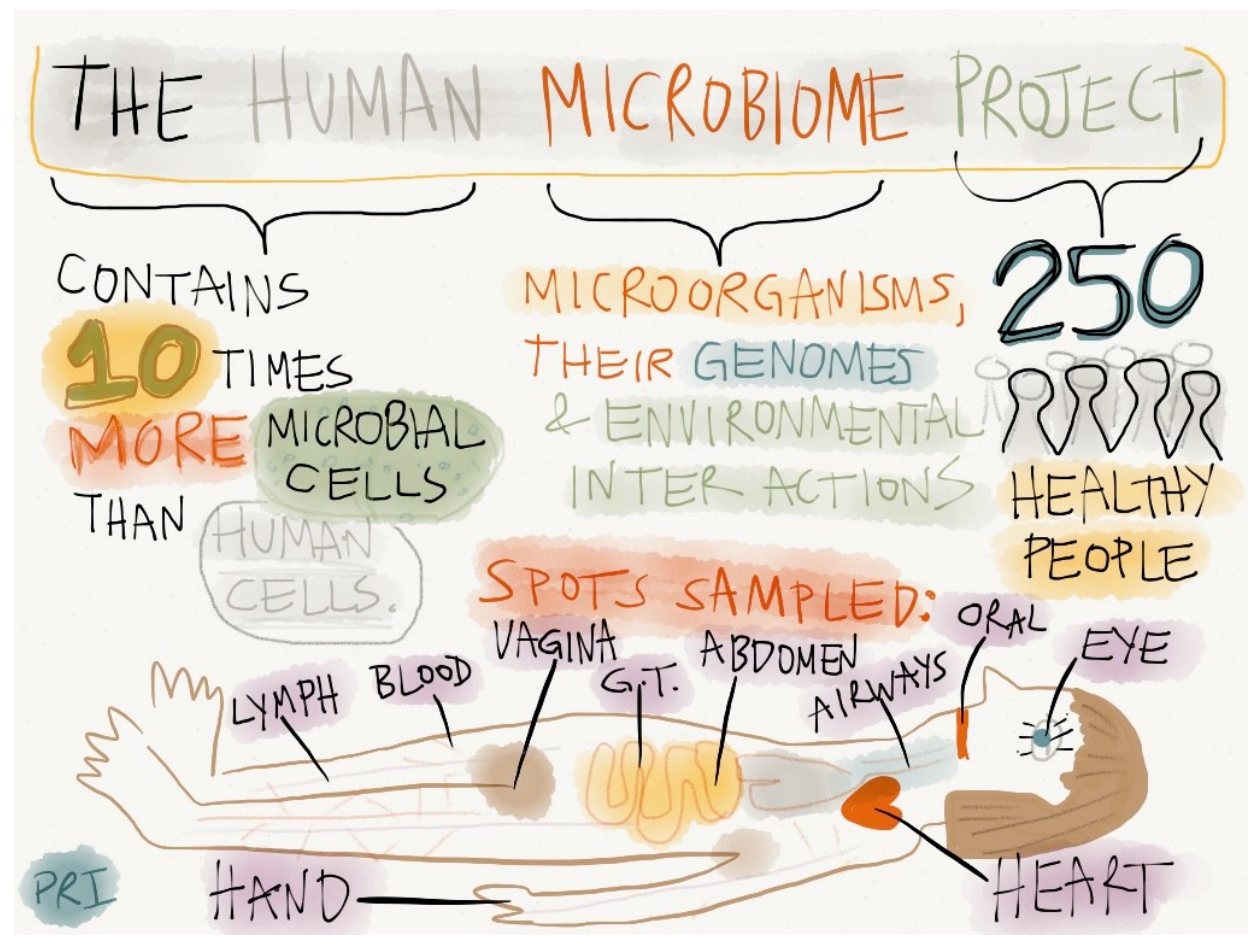 THE HUMAN MICROBIOME PROJECT
CONTAINS
10 TIMES
MORE MICROBIAL
CELLS
THAN
HUMAN
CELLS.
MICROORGANISMS,
THEIR GENOMES
& ENVIRONMENTAL
INTERACTIONS
250
HEALTHY
PEOPLE
SPOTS SAMPLED:
LYMPH
BLOOD
VAGINA
G.T.
ABDOMEN
AIRWAYS
ORAL
EYE
HAND
HEART
PRI